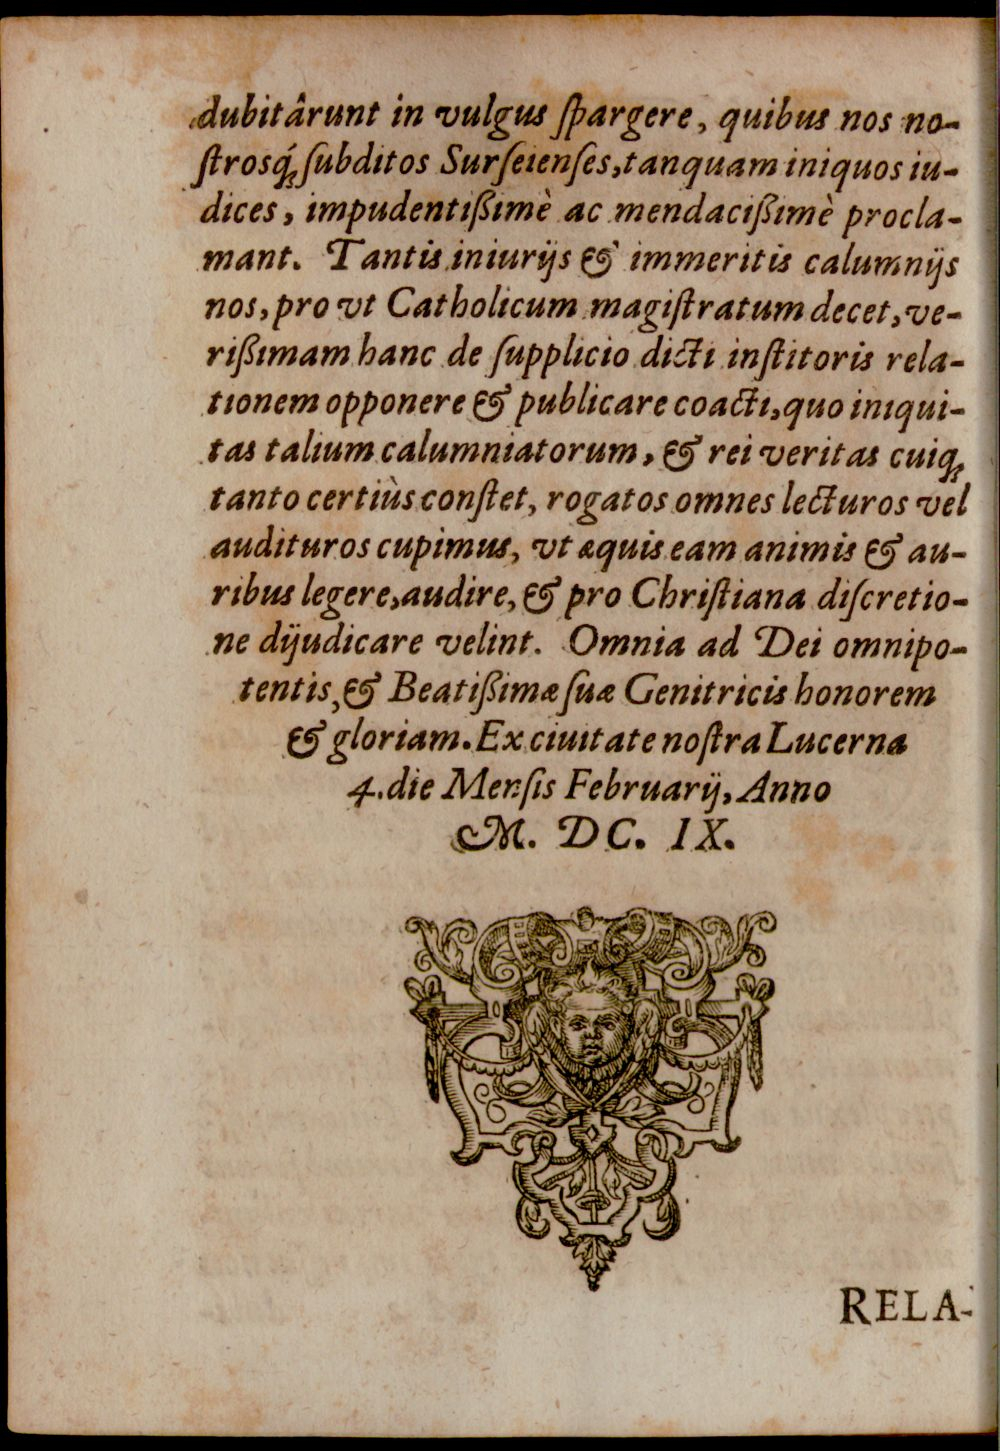 dubitârunt in vulgus ſpargere, quibus nos no-
ſtrosq́ꝫ ſubditos Surſeienſes, tanquam iniquos iu-
dices, impudentißimè ac mendacißimè procla-
mant. Tantis iniurijs & immeritis calumnijs
nos, pro vt Catholicum magiſtratum decet, ve-
rißimam hanc de ſupplicio dicti inſtitoris rela-
tionem opponere & publicare coacti, quo iniqui-
tas talium calumniatorum, & rei veritas cuiqꝫ
tanto certiùs conſtet, rogatos omnes lecturos vel
audituros cupimus, vt æquis eam animis & au-
ribus legere, audire, & pro Chriſtiana diſcretio-
ne dijudicare velint. Omnia ad Dei omnipo-
tentis, & Beatißimæ ſuæ Genitricis honorem
& gloriam. Ex ciuitate noſtra Lucerna
4. die Menſis Februarij, Anno
M. DC. IX.
RELA-